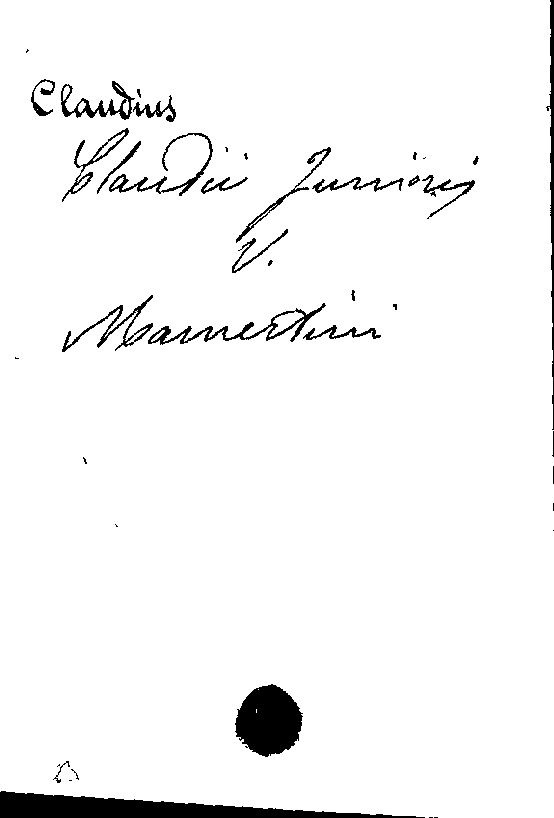 Claudius
Claudii Junioris
V.
Mamertini